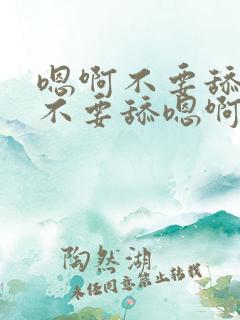 嗯啊不要舔
不要舔嗯啊
陶然湖
未经同意禁止转载